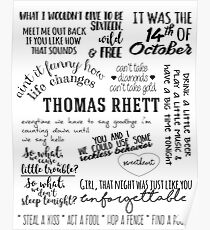 WHAT I WOULDN'T GIVE TO BE
SIXTEEN,
wild
& FREE
IT WAS THE
14TH OF
October
MEET ME OUT BACK
IF YOU LIKE HOW
THAT SOUNDS
ain't it funny how
life changes
can't take
diamonds
can't take gold
DRINK A LITTLE BEER
PLAY A LITTLE MUSIC &
HAVE A BIG TIME TONIGHT
THOMAS RHETT
everytime we have to say goodbye I'm
counting down until
we say hello
YOU AND I
WE COULD USE SOME
reckless behavior
So, what,
little trouble?
sweetheart
So what,
don't
sleep tonight?
GIRL, THAT NIGHT WAS JUST LIKE YOU
unforgettable
* STEAL A KISS * ACT A FOOL * HOP A FENCE * FIND A